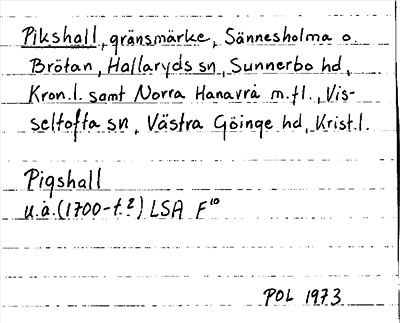 Pikshall, gränsmärke, Sännesholma o.
Brötan, Hallaryds sn, Sunnerbo hd,
Kron.l. samt Norra Hanavrå m.fl., Vis-
seltofta sn, Västra Göinge hd, Krist.l.
Pigshall
u.å. (1700-t.?) LSA F¹⁰
POL 1973